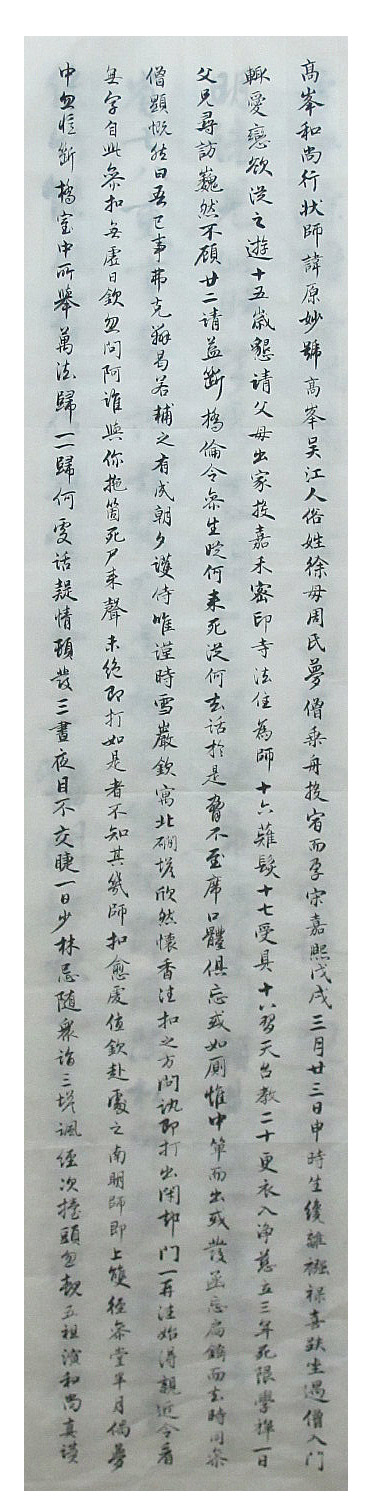 高峯和尚行状師諱原妙號高峯吴江人俗姓徐母周民夢僧乗舟投宿而孕宋嘉熙戊戌三月廿三日申時生纔離襁褓喜趺坐遇僧入門
輙愛戀欲從之遊十五歲懇請父母出家投嘉禾密印寺法住為師十六薙髮十七受具十八習天台教二十更衣入淨慈立三年死限學禅一日
父兄尋訪巍然不顧廿二请益斷橋倫令叅生從何来死從何去话於是脅不至席口體俱忘或如厠惟中单而出或發函忘扃鐍而去時同叅
僧顕慨然曰吾己事弗克辦曷若輔之有成朝夕護侍唯謹時雪巖欽寓北磵塔欣然懷香往扣之方问訊即打出闭却門一再往始得親近令看
無字自此叅扣無虚日欽忽问阿谁與你拖箇死尸来聲未绝即打如是者不知其幾師扣愈虔值欽赴處之南明師即上雙径叅堂半月偶夢
中忽憶斷橋室中所舉萬法歸一一歸何處话疑情頓發三晝夜目不交睫一日少林忌随衆诣三塔諷经次擡頭忽覩五祖演和尚真讃